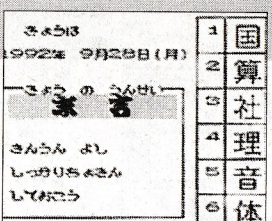 きょうは
1992年 9月28日(月)
きょう の うんせい
きんうん よし
しっかりちょきん
しておこう
1 国
2 算
3 社
4 理
5 音
6 体